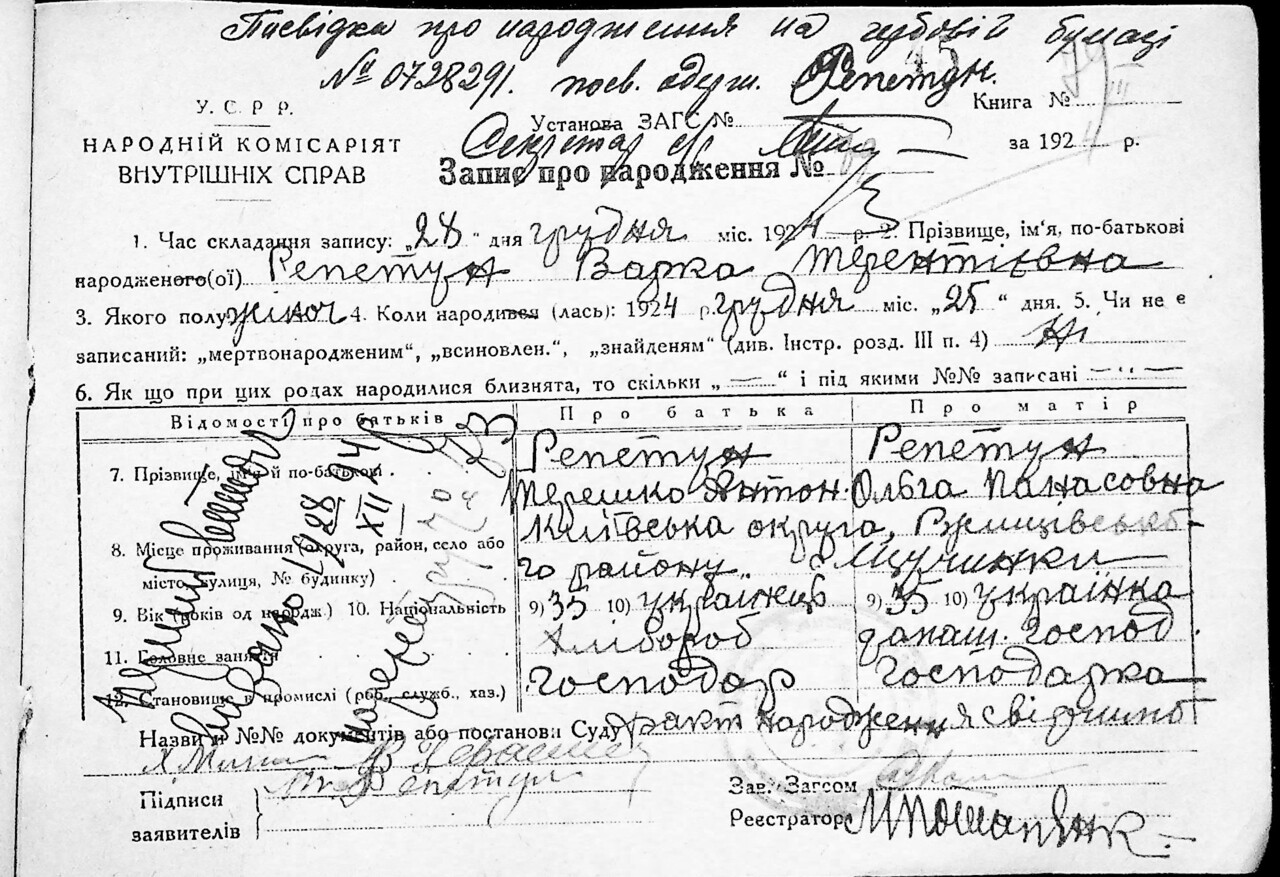 Посвідка про народження на гербовій бумазі
№ 072829/. посв. одерж. Репетун.
45
79
III
У. С. Р. Р.
НАРОДНІЙ КОМІСАРІЯТ
ВНУТРІШНІХ СПРАВ
Установа ЗАГС №
Книга №
за 1924 р.
Секретар
Запис про народження №
1. Час складання запису: „28“ дня грудня міс. 1924 р. 2. Прізвище, ім'я, по-батькові
народженого(ої) Репетун Варка Терентієвна
3. Якого полу жіноч 4. Коли народився (лась): 1924 р. грудня міс. „25“ дня. 5. Чи не є
записаний: „мертвонародженим“, „всиновлен.“, „знайденям“ (див. Інстр. розд. III п. 4) Ні
6. Як що при цих родах народилися близнята, то скільки „—“ і під якими №№ записані — " —
Відомості про батьків
Про батька
Про матір
7. Прізвище, ім'я й по-батькові
Репетун
Терешко Антон
Репетун
Ольга Панасовна
8. Місце проживання (округа, район, село або
місто, вулиця, № будинку)
Київська округа, Ржищівсько-
го району. Щучинки
9. Вік (років од народж.) 10. Національність
9) 35 10) українець
9) 35 10) українка
11. Головне заняття
хлібороб
домаш. господ
12. Становище в промислі (роб., служб., хаз.)
господар
господарка
1928
XII
Назви й №№ документів або постанови Суду факт народження
Репетун
Підписи
заявителів
Зав. Загсом
Реєстратор